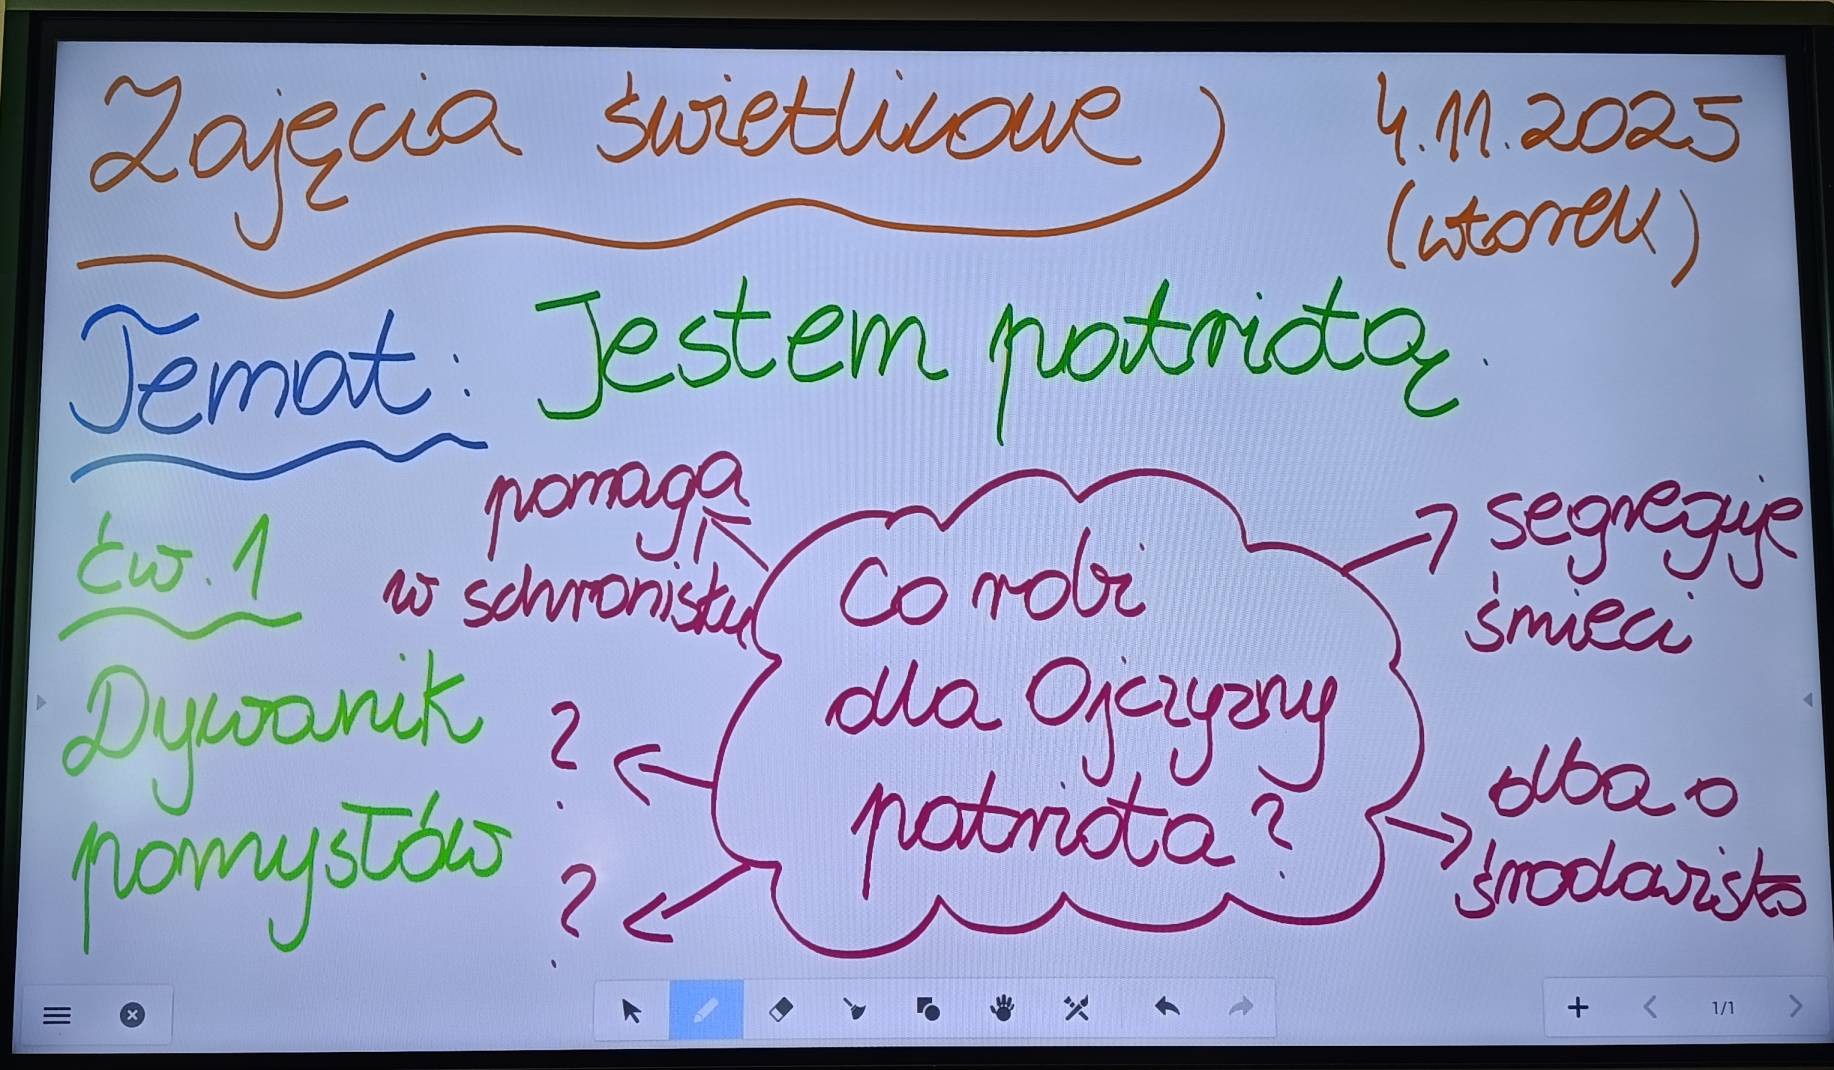 Zajęcia świetlicowe
4.11.2025
(wtorek)
Temat: Jestem patriotą.
ćw. 1
Dywanik
pomysłów
pomaga
w schronisku
Co robi
dla Ojczyzny
patriota?
segreguje
śmieci
dba o
środowisko
?
?
1/1